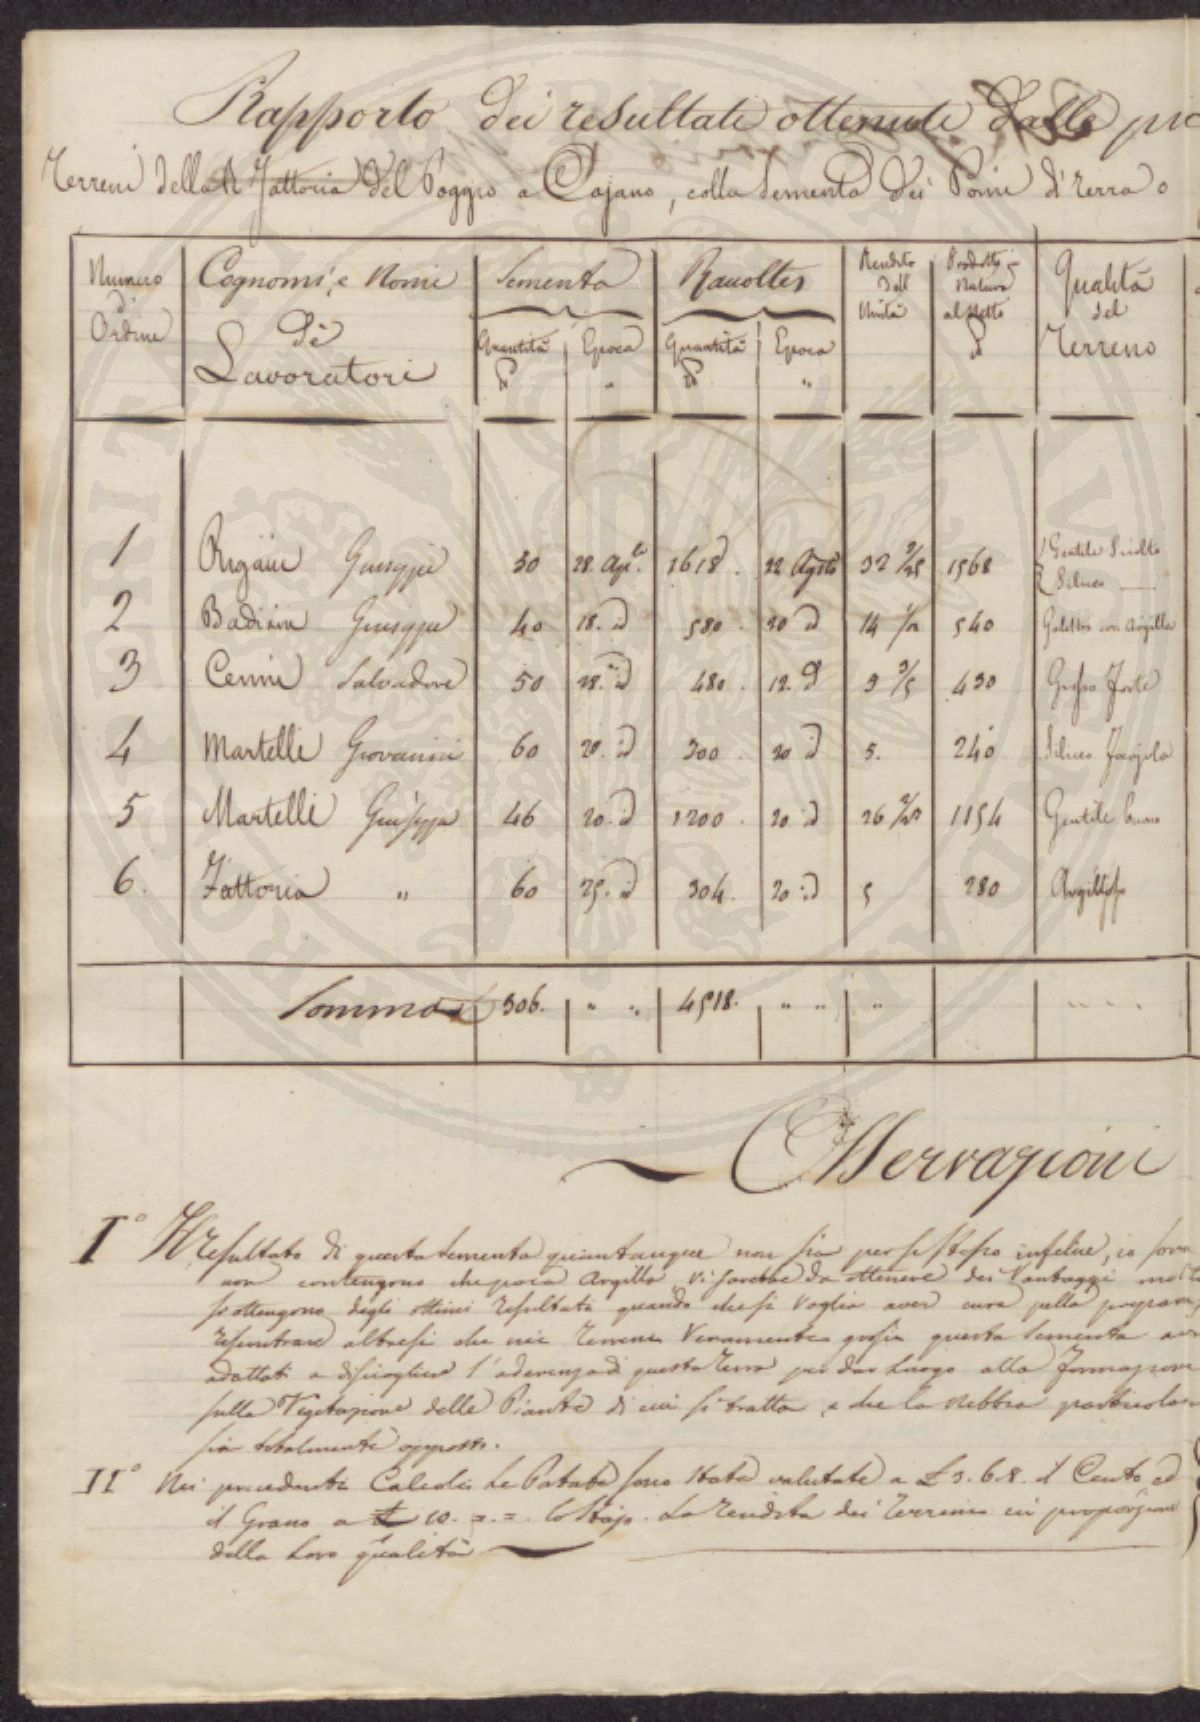 Rapporto dei resultati ottenuti dalle
Terreni della R Fattoria del Poggio a Cajano, colla Sementa dei Pomi di terra o
Numero di Ordine
Cognomi, e Nomi di Lavoratori
Sementa
Raccolte
Rendita dell' Unità
Prodotto Naturo al Netto ℔
Qualità del Terreno
Quantità ℔
Epoca "
Quantità ℔
Epoca "
1 Giuseppe 30 28. Aple. 1618. 22 Agosto 32 1568 Gentile Sciolto
Siliceo
2 Giuseppe 40 18. id 580. 20 id 14 1/2 540 Galestro con Argilla
3 Cerini Salvadore 50 28. id 480. 12. id 9 3/5 430 Grosso Forte
4 Martelli Giovanni 60 20. id 300. 20 id 5. 240 Siliceo
5 Martelli Giuseppe 46 20. id 1200. 20 id 26 1154 Gentile buono
6. Fattoria " 60 25. id 304. 20 id 5 280 Argilloso
Somma 306. " " 4518. " " "
Osservazioni
I° Il resultato di questa Sementa quantunque non sia per se stesso infelice, io sono
non contengono che poca Argilla vi sarebbe da ottenere dei Vantaggi molto
si ottengono degli ottimi resultati quando che si voglia aver cura nella
altresì che nei terreni veramente grossi questa Sementa
adattati a disciogliere l'aderenza di questa terra per dar luogo alla formazione
sulla Vegetazione delle Piante di cui si tratta, e che la Nebbia
sia totalmente opposto.
II° Nei precedenti Calcoli le Patate sono State valutate a £ 3. 6. 8. il Cento ed
il Grano a £ 10. =. =. lo Stajo. La rendita dei Terreni in proporzione
della Loro qualità